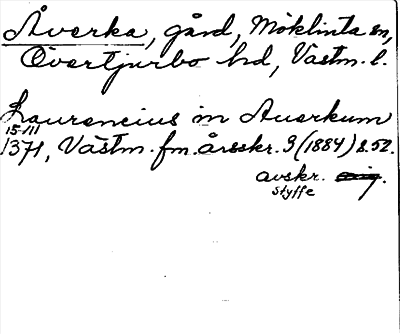 Åverka, gård, Möklinta sn,
Övertjurbo hd, Västm. l.
Laurencius in Auerkum
15/III
1371, Västm. fm. årsskr. 3 (1884) s. 52.
avskr. orig.
Styffe